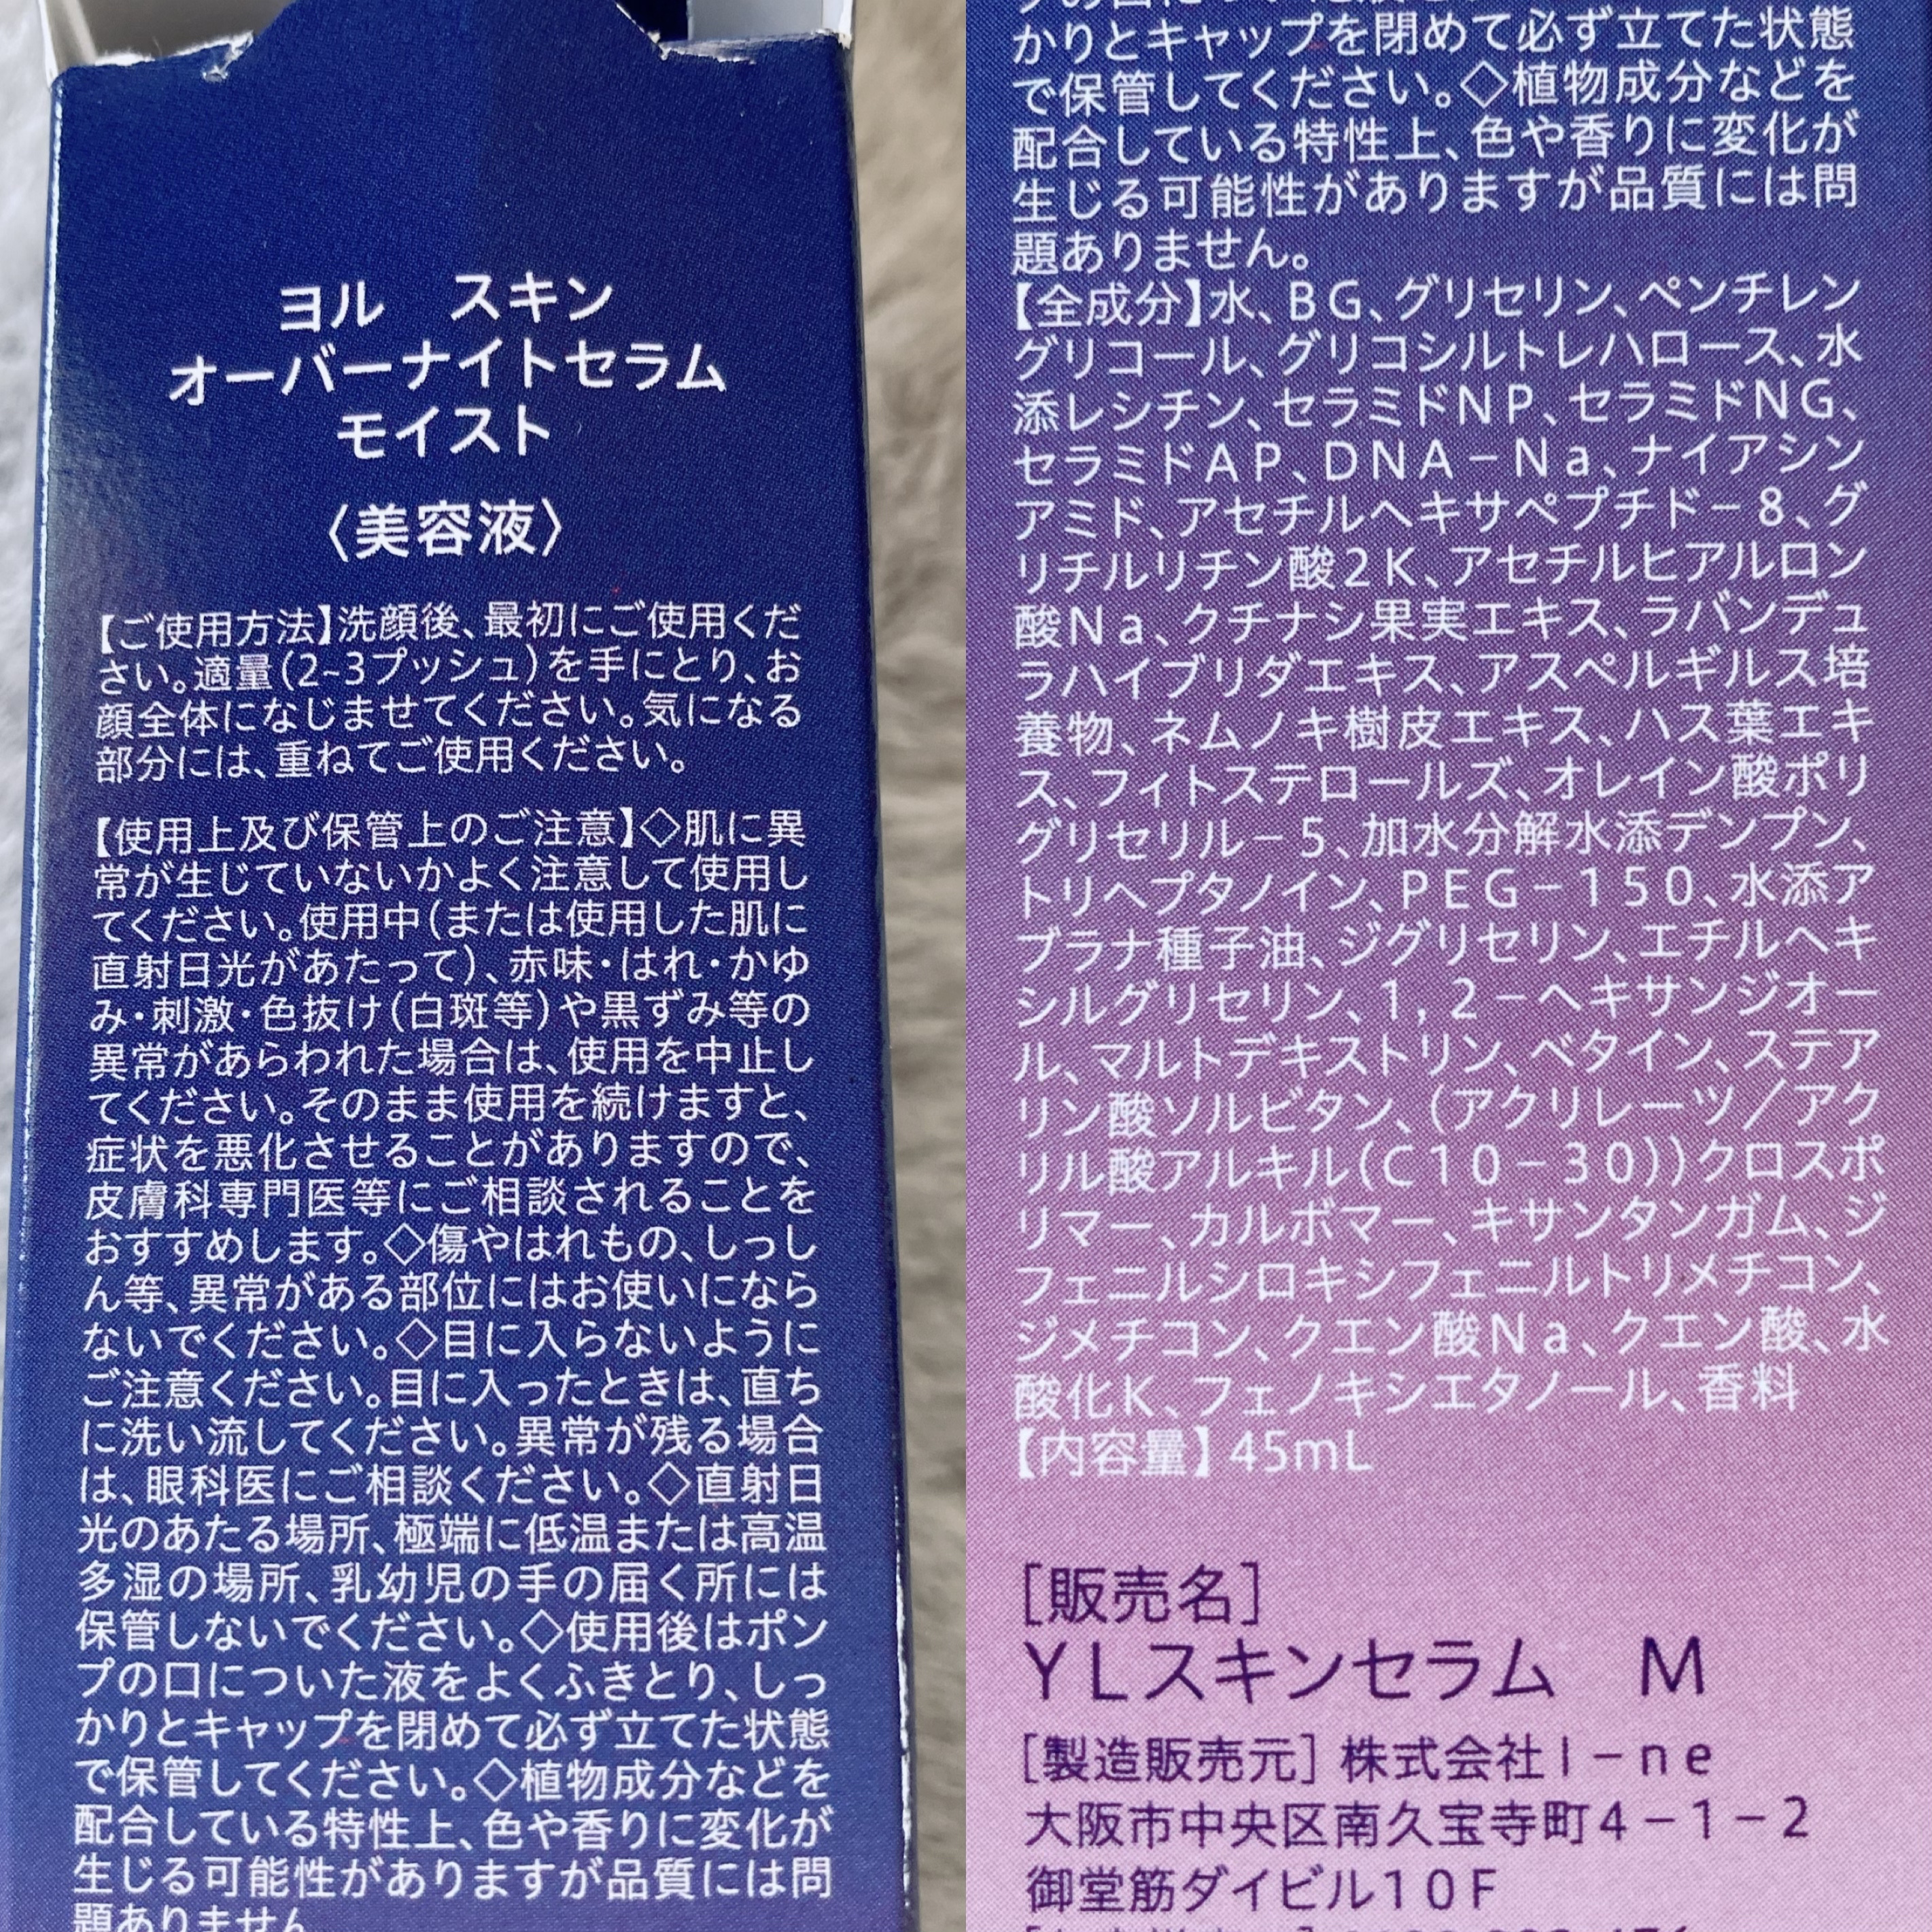 ヨル　スキン
オーバーナイトセラム
モイスト
〈美容液〉
【ご使用方法】洗顔後、最初にご使用くだ
さい。適量(2-3プッシュ)を手にとり、お
顔全体になじませてください。気になる
部分には、重ねてご使用ください。
【使用上及び保管上のご注意】◇肌に異
常が生じていないかよく注意して使用し
てください。使用中(または使用した肌に
直射日光があたって)、赤味・はれ・かゆ
み・刺激・色抜け(白斑等)や黒ずみ等の
異常があらわれた場合は、使用を中止し
てください。そのまま使用を続けますと、
症状を悪化させることがありますので、
皮膚科専門医等にご相談されることを
おすすめします。◇傷やはれもの、しっし
ん等、異常がある部位にはお使いになら
ないでください。◇目に入らないように
ご注意ください。目に入ったときは、直ち
に洗い流してください。異常が残る場合
は、眼科医にご相談ください。◇直射日
光のあたる場所、極端に低温または高温
多湿の場所、乳幼児の手の届く所には
保管しないでください。◇使用後はポン
プの口についた液をよくふきとり、しっ
かりとキャップを閉めて必ず立てた状態
で保管してください。◇植物成分などを
配合している特性上、色や香りに変化が
生じる可能性がありますが品質には問
題ありません
かりとキャップを閉めて必ず立てた状態
で保管してください。◇植物成分などを
配合している特性上、色や香りに変化が
生じる可能性がありますが品質には問
題ありません。
【全成分】水、BG、グリセリン、ペンチレン
グリコール、グリコシルトレハロース、水
添レシチン、セラミドNP、セラミドNG、
セラミドAP、DNA－Na、ナイアシン
アミド、アセチルヘキサペプチド－8、グ
リチルリチン酸2K、アセチルヒアルロン
酸Na、クチナシ果実エキス、ラバンデュ
ラハイブリダエキス、アスペルギルス培
養物、ネムノキ樹皮エキス、ハス葉エキ
ス、フィトステロールズ、オレイン酸ポリ
グリセリル－5、加水分解水添デンプン、
トリヘプタノイン、PEG－150、水添ア
ブラナ種子油、ジグリセリン、エチルヘキ
シルグリセリン、1，2－ヘキサンジオー
ル、マルトデキストリン、ベタイン、ステア
リン酸ソルビタン、(アクリレーツ／アク
リル酸アルキル(C10－30))クロスポ
リマー、カルボマー、キサンタンガム、ジ
フェニルシロキシフェニルトリメチコン、
ジメチコン、クエン酸Na、クエン酸、水
酸化K、フェノキシエタノール、香料
【内容量】45mL
[販売名]
YLスキンセラム　M
[製造販売元] 株式会社I－ne
大阪市中央区南久宝寺町4－1－2
御堂筋ダイビル10F